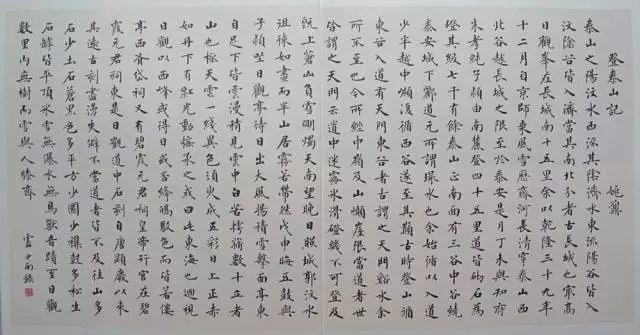 登泰山記 姚鼐
泰山之陽汶水西流其陰濟水東流陽谷皆入
汶陰谷皆入濟當其南北分者古長城也最高
日觀峯在長城南十五里余以乾隆三十九年
十二月自京師乘風雪歷齊河長清穿泰山西
北谷越長城之限至於泰安是月丁未與知府
朱孝純子潁由南麓登四十五里道皆砌石為
磴其級七千有餘泰山正南面有三谷中谷繞
泰安城下酈道元所謂環水也余始循以入道
少半越中嶺復循西谷遂至其巔古時登山循
東谷入道有天門東谷者古謂之天門谿水余
所不至也今所經中嶺及山巔崖限當道者世
皆謂之天門云道中迷霧冰滑磴幾不可登及
既上蒼山負雪明燭天南望晚日照城郭汶水
徂徠如畫而半山居霧若帶然戊申晦五鼓與
子潁坐日觀亭待日出大風揚積雪擊面亭東
自足下皆雲漫稍見雲中白若摴蒱數十立者
山也極天雲一綫異色須臾成五彩日上正赤
如丹下有紅光動搖承之或曰此東海也迴視
日觀以西峰或得日或否絳皓駁色而皆若僂
亭西有岱祠又有碧霞元君祠皇帝行宮在碧
霞元君祠東是日觀道中石刻自唐顯慶以來
其遠古刻盡漫失僻不當道者皆不及往山多
石少土石蒼黑色多平方少圜少雜樹多松生
石罅皆平頂冰雪無瀑水無鳥獸音蹟至日觀
數里內無樹而雪與人膝齊